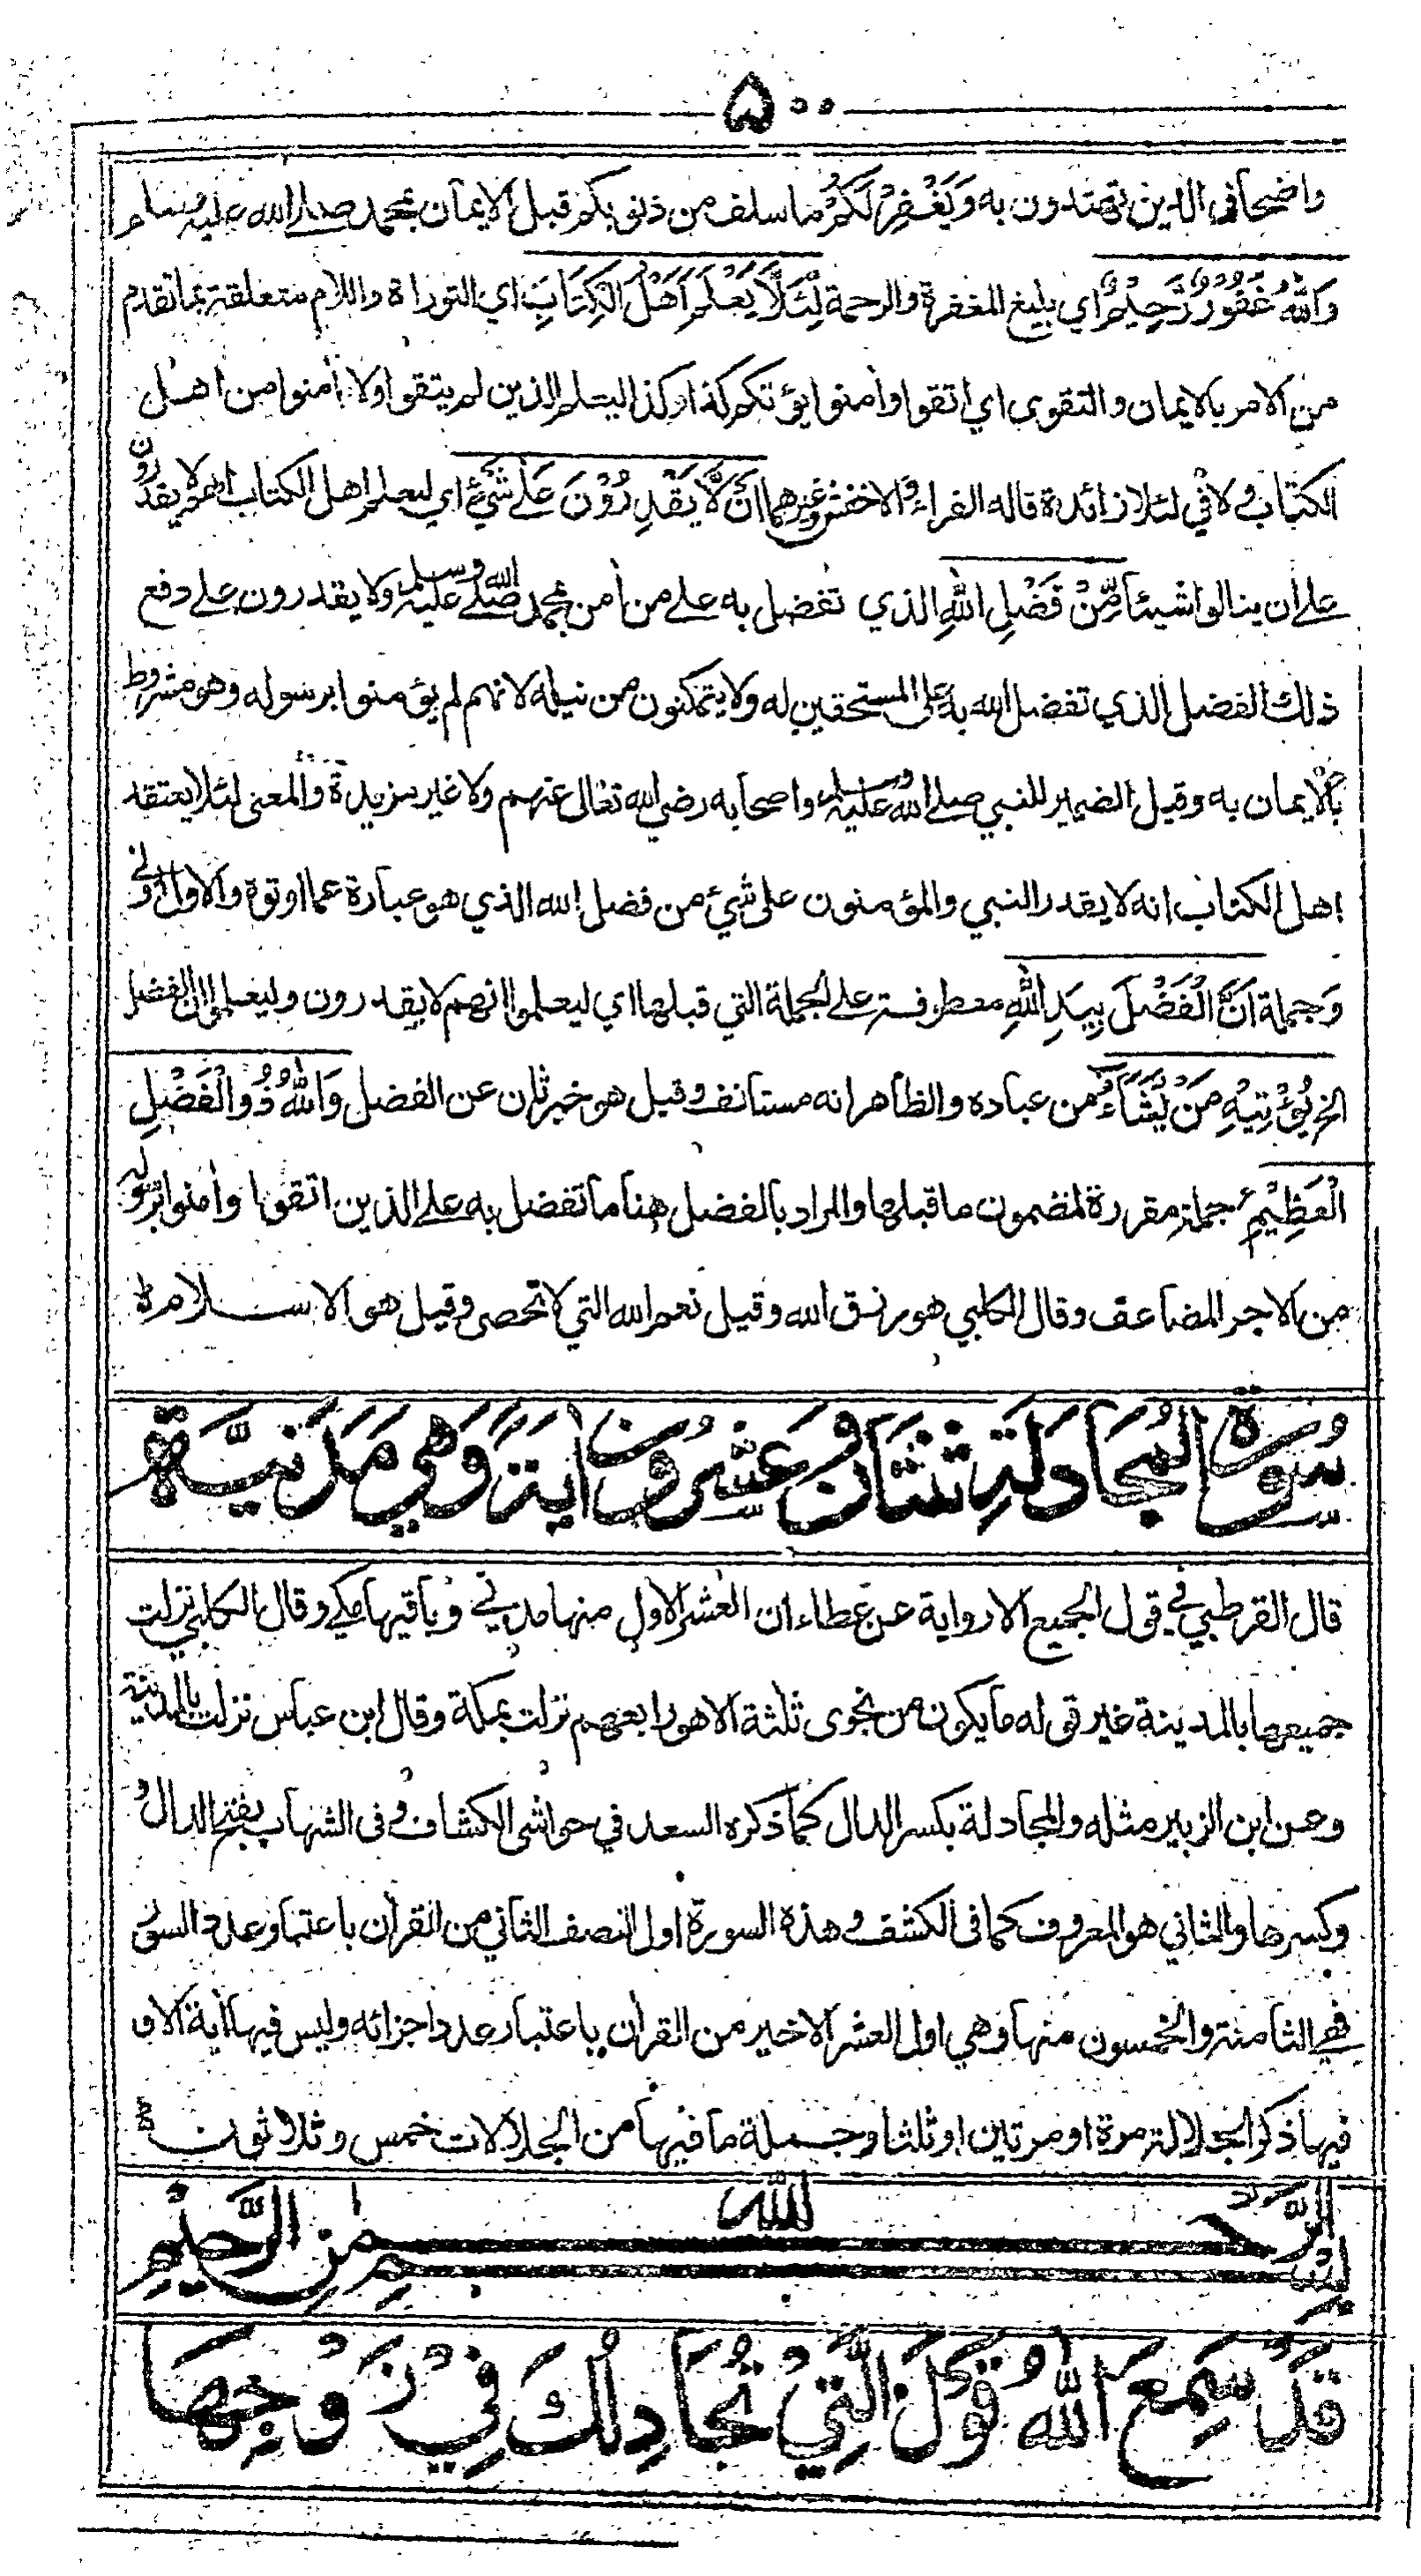 ۵۰۰
واضحا في الدين تهتدون به وَيَغْفِرْ لَكُمْ ما سلف من ذنوبكم قبل الايمان بمحمد صلے الله عليه وسلم
وَاللّٰهُ غَفُوْرٌ رَّحِيْمٌ اي بليغ المغفرة والرحمة لِئَلَّا يَعْلَمَ اَهْلُ الْكِتَابِ اي التوراة واللام متعلقة بما تقدم
من الامر بالايمان والتقوى اي اتقوا وأمنوا يؤتكم كذا وكذا ليعلم الذين لم يتقوا ولا أمنوا من اهل
الكتاب ولا في لئلا زائدة قاله الفراء والاخفش وغيرهما اَنْ لَّا يَقْدِرُوْنَ عَلٰے شَيْءٍ اي ليعلم اهل الكتاب انهم لا يقدرون
علے ان ينالوا شيئا مِّنْ فَضْلِ اللّٰهِ الذي تفضل به علے من أمن بمحمد صلے الله عليه وسلم ولا يقدرون علے دفع
ذلك الفضل الذي تفضل الله به على المستحقين له ولا يتمكنون من نيله لانهم لم يؤمنوا برسوله وهو مشروط
بالايمان به وقيل الضمير للنبي صلے الله عليه وسلم واصحابه رضي الله تعالى عنهم ولا غير مزيدة والمعنى لئلا يعتقد
اهل الكتاب انه لا يقدر النبي والمؤمنون على شيء من فضل الله الذي هو عبارة عما اوتوة والاول اولى
وَجملة اَنَّ الْفَضْلَ بِيَدِ اللّٰهِ معطوفة علے الجملة التي قبلها اي ليعلموا انهم لا يقدرون وليعلموا ان الفضل
الخ يُؤْتِيْهِ مَنْ يَّشَاءُ من عباده والظاهر انه مستانف وقيل هو خبر ثان عن الفضل وَاللّٰهُ ذُو الْفَضْلِ
الْعَظِيْمِ جملة مقررة لمضمون ما قبلها والمراد بالفضل هنا ما تفضل به علے الذين اتقوا وأمنوا برسوله
من الاجر المضاعف وقال الكلبي هو رزق الله وقيل نعم الله التي لا تحصى وقيل هو الاسلام
سُوْرَةُ الْمُجَادَلَةِ ثِنْتَانِ وَعِشْرُوْنَ اٰيَةً وَهِيَ مَدَنِيَّةٌ
قال القرطبي في قول الجميع الا رواية عن عطاء ان العشر الاول منها مدني وباقيها مكي وقال الكلبي نزلت
جميعها بالمدينة غير قوله ما يكون من نجوى ثلثة الا هو رابعهم نزلت بمكة وقال ابن عباس نزلت بالمدينة
وعن ابن الزبير مثله والمجادلة بكسر الدال كما ذكره السعد في حواشي الكشاف وفى الشهاب بفتح الدال
وكسرها والثاني هو المعروف كما فى الكشف وهذه السورة اول النصف الثاني من القرأن باعتبار عدد السور
فهي الثامنة والخمسون منها وهي اول العشر الاخير من القرأن باعتبار عدد اجزائه وليس فيها أية الا و
فيها ذكر الجلالة مرة او مرتين او ثلثا وجملة ما فيها من الجلالات خمس وثلاثون
بِسْمِ اللّٰهِ الرَّحْمٰنِ الرَّحِيْمِ
قَدْ سَمِعَ اللّٰهُ قَوْلَ الَّتِيْ تُجَادِلُكَ فِيْ زَوْجِهَا